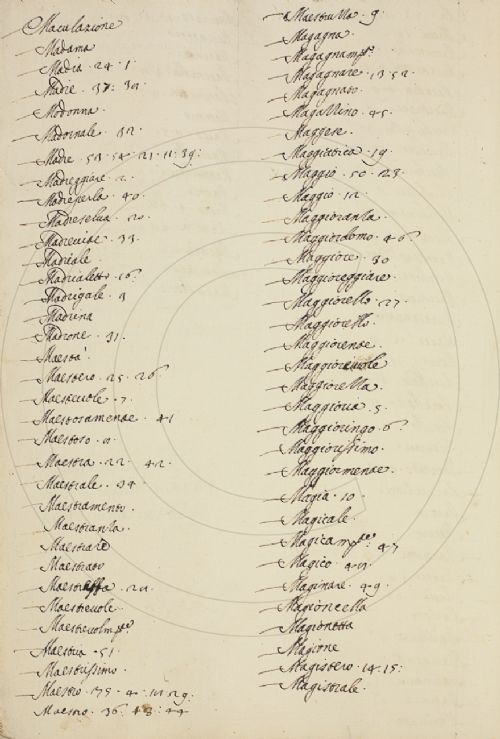 Maculazione
Madama
Madia . 24 . 1
Madre . 37 : 30 .
Madonna .
Madornale . 32 .
Madre . 53 . 54 . 21 . 11 . 39 :
Madreggiare . 2 .
Madreperla . 40 .
Madreselva . 20 .
Madrevite . 33 .
Madriale .
Madrialetto . 16 .
Madrigale . 9
Madrina
Madrone . 31 .
Maestà .
Maestero . 25 . 26 .
Maestevole . 7 .
Maestosamente . 41
Maestoso .
Maestra . 22 . 42 .
Maestrale . 34
Maestramento .
Maestranza .
Maestrare
Maestrato
Maestressa .
Maestrevole
Maestrevolmte .
Maestria . 51 .
Maestrissimo .
Maestro .
Maestro . 36 . 43 : 44
Maestruzza . 9 .
Magagna .
Magagnamto .
Magagnare . 13 . 52 .
Magagnato .
Magazzino . 45 .
Maggese .
Maggiatica . 19 .
Maggio . 50 . 23 .
Maggio . 12 .
Maggioranza .
Maggiordomo . 46 .
Maggiore . 30
Maggioreggiare .
Maggiorello . 27 .
Maggioretto .
Maggiorente .
Maggiorevole
Maggiorezza .
Maggioria . 5 .
Maggioringo . 6 .
Maggiorissimo .
Maggiormente .
Magia . 10 .
Magicale .
Magicamte . 47
Magico .
Maginare . 49 .
Magioncella
Magionetta
Magione
Magistero . 14 . 15 :
Magistrale .